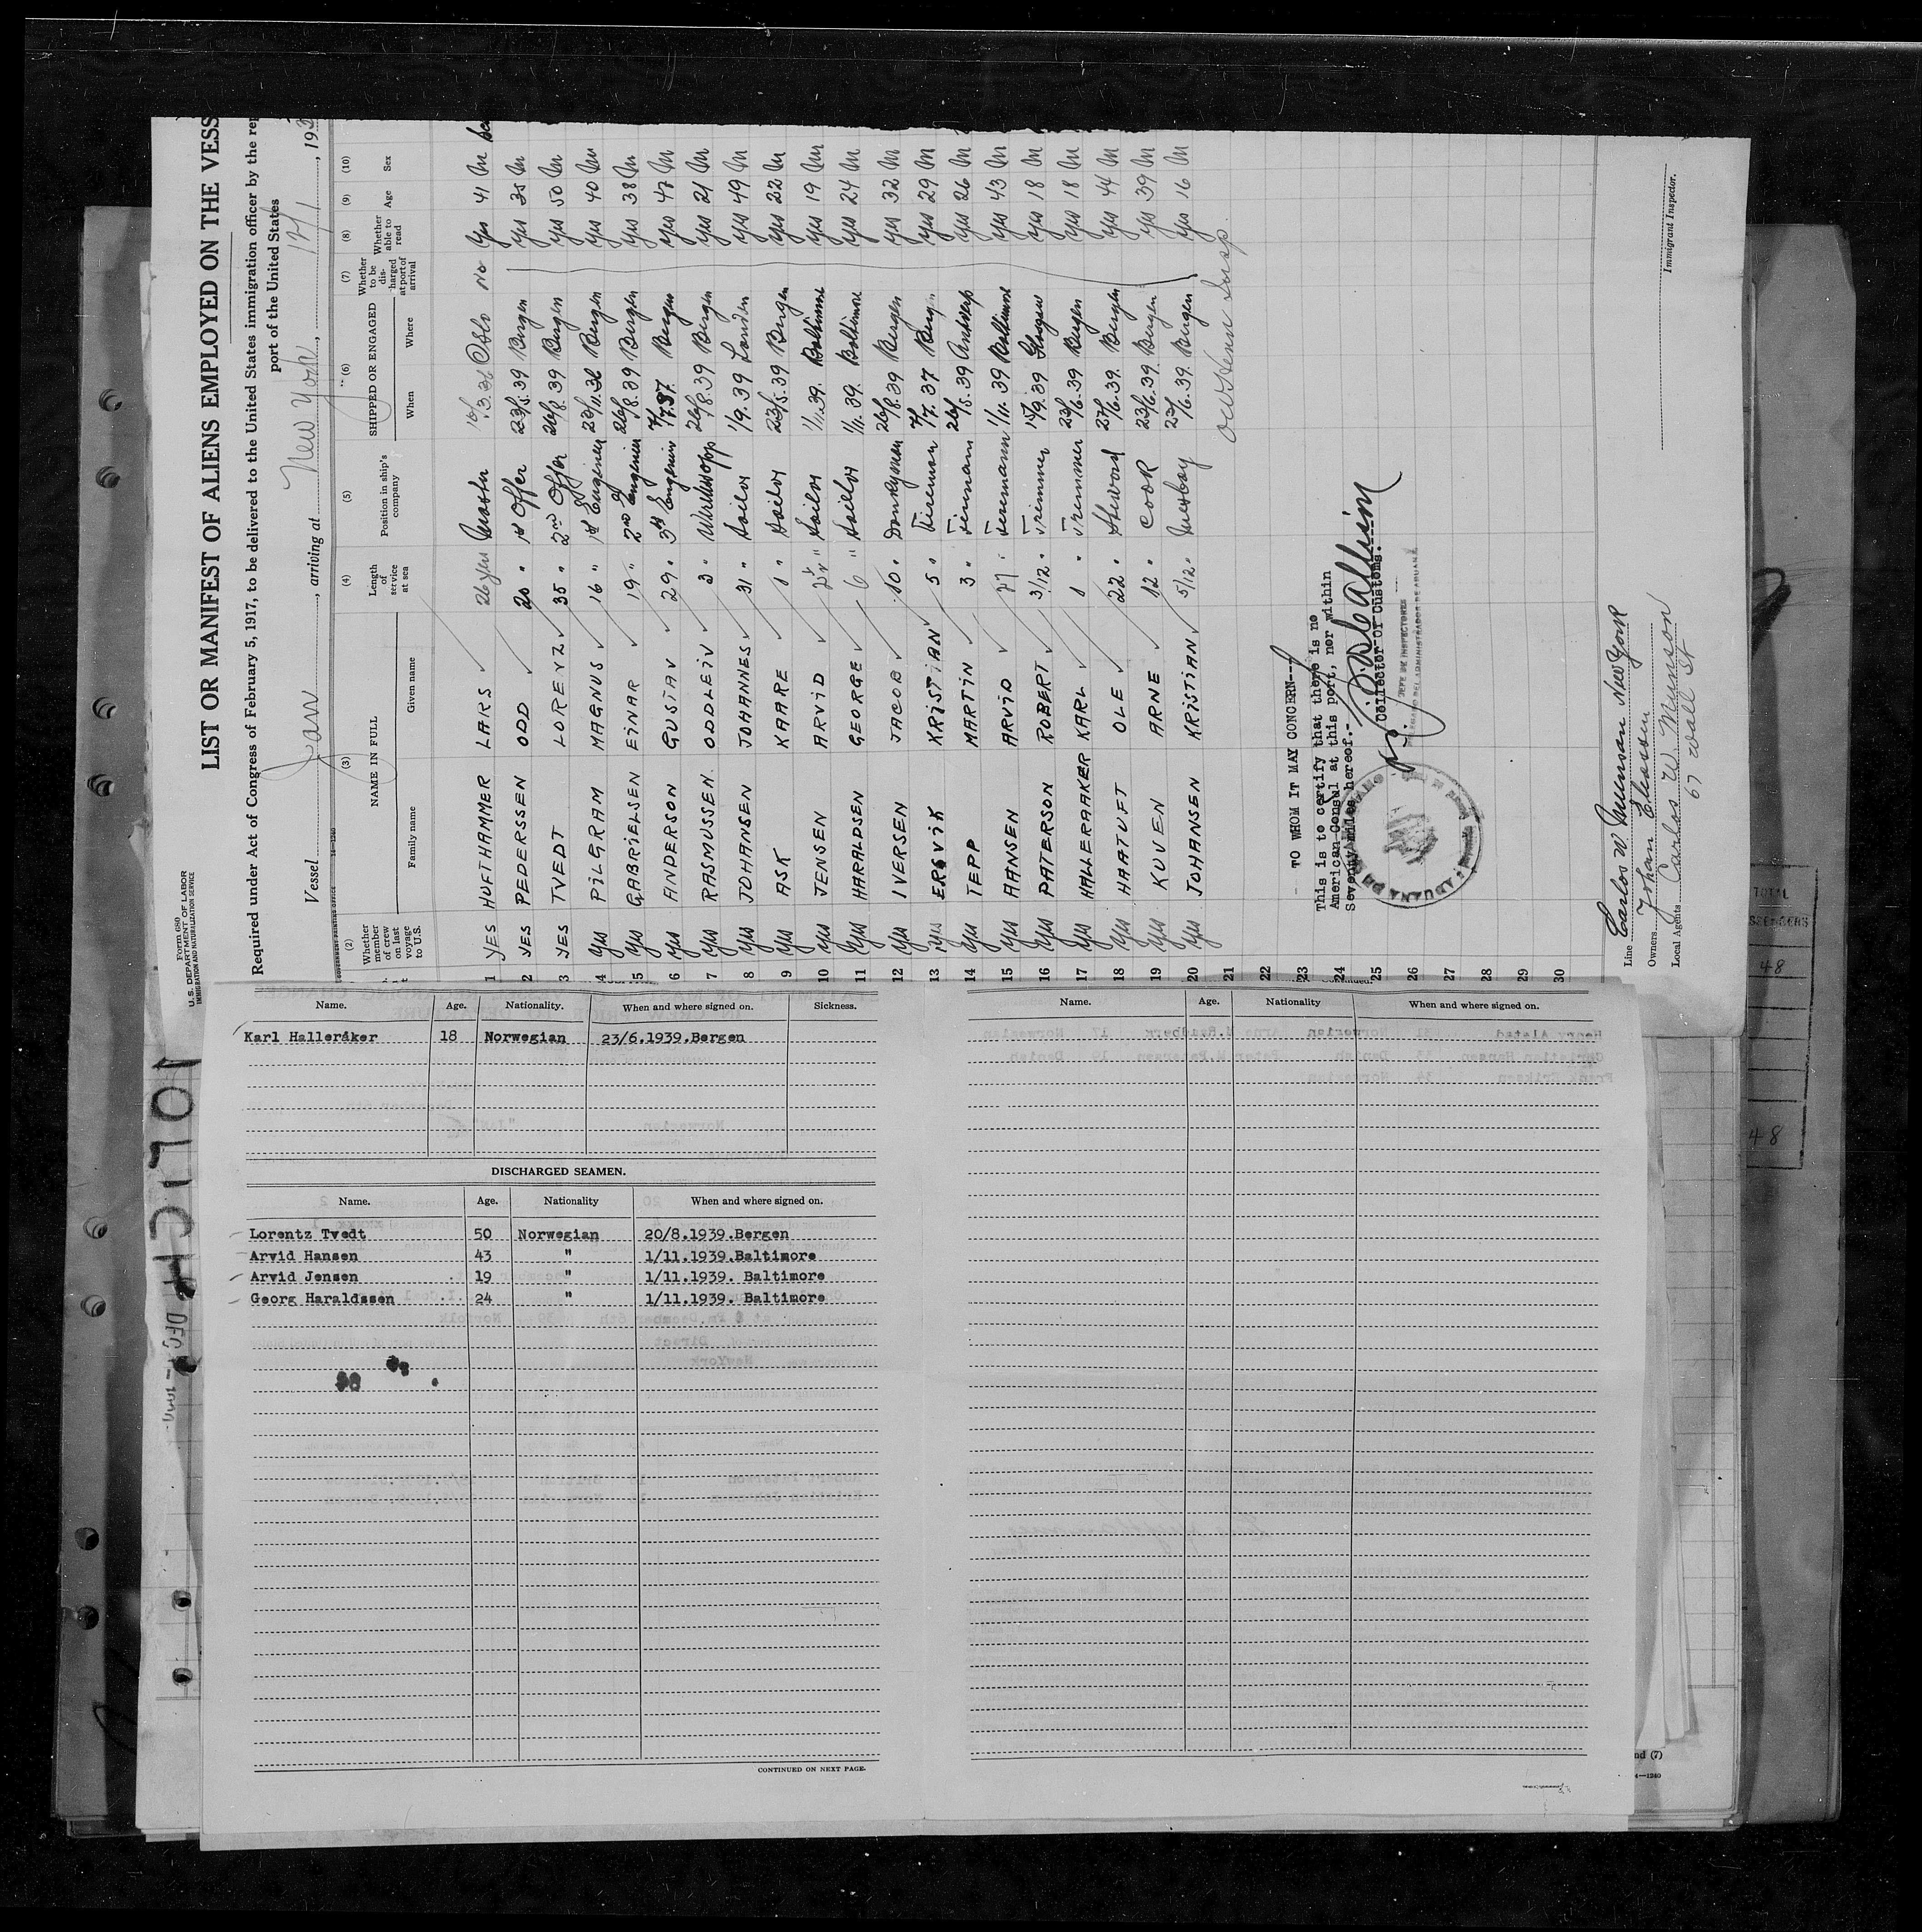 Form 680
U.S. DEPARTMENT OF LABOR
IMMIGRATION AND NATURALIZATION SERVICE
LIST OR MANIFEST OF ALIENS EMPLOYED ON THE VESS
Required under Act of Congress of February 5, 1917, to be delivered to the United States immigration officer by the rep
port of the United States
Vessel Jan, arriving at New York, 12/1, 193
(2) (3) (4) (5) (6) (7) (8) (9) (10)
Whether member of crew on last voyage to U.S. NAME IN FULL Family name Given name Length of service at sea Position in ship's company SHIPPED OR ENGAGED When Where Whether to be discharged at port of arrival Whether able to read Age Sex
1 YES HUFTHAMMER LARS 26 yrs Master .3.36 Oslo No Yes 41 M
2 YES PEDERSSEN ODD 20 " 1st Offer 23/5.39 Bergen Yes 35 M
3 YES TVEDT LORENZ 35 " 2nd Offer 20/8.39 Bergen Yes 50 M
4 Yes PILGRAM MAGNUS 16 " 1st Enginer 23/11.36 Bergen Yes 40 M
5 Yes GABRIELSEN EINAR 19 " 2nd Enginer 20/8.39 Bergen Yes 38 M
6 Yes ANDERSON GUSTAV 29 " 3rd Enginer 7.37. Bergen Yes 47 M
7 Yes RASMUSSEN ODDLEIV 3 " 20/8.39 Bergen Yes 21 M
8 Yes JOHANSEN JOHANNES 31 " Sailor 1/9.39 London Yes 49 M
9 Yes ASK KAARE 1 " Sailor 23/5.39 Bergen Yes 22 M
10 Yes JENSEN ARVID " Sailor 1/11.39. Baltimore Yes 19 M
11 Yes HARALDSEN GEORGE 6 " Sailor 1/11.39. Baltimore Yes 24 M
12 Yes IVERSEN JACOB 10 " Donkeyman 20/8.39 Bergen Yes 32 M
13 Yes ERSVIK KRISTIAN 5 " Fireman 7.37 Bergen Yes 29 M
14 Yes TEPP MARTIN 3 " Fireman 26/5.39 Antwerp Yes 26 M
15 Yes AANSEN ARVID 27 " Firemann 1/11.39 Baltimore Yes 43 M
16 Yes PATERSON ROBERT 3/12 " Trimmer 15/9.39 Glasgow Yes 18 M
17 Yes HALLERAAKER KARL 1 " Trimmer 23/6.39 Bergen Yes 18 M
18 Yes HAATUFT OLE 22 " Steward 27/6.39. Bergen Yes 44 M
19 Yes KUVEN ARNE 12 " Cook 23/6.39. Bergen Yes 39 M
20 Yes JOHANSEN KRISTIAN 5/12 " Messboy 23/6.39. Bergen Yes 16 M
21
22
23
24
25
26
27
28
29
30
- TO WHOM IT MAY CONCERN--
This is to certify that there is no
American Consul at this port, nor within
Seventy Miles hereof.-
Collector Of Customs.
JEFE DE INSPECTORES
DEL ADMINISTRADOR DE ADUANA
ADUANA DE
Line Carlos W Munson New York
Owners Johan Eliassen
Local Agents Carlos W. Munson
67 Wall St
Immigrant Inspector.
TOTAL
48
48
Continued.
Name. Age. Nationality. When and where signed on. Sickness.
Karl Halleråker 18 Norwegian 23/6.1939.Bergen
DISCHARGED SEAMEN.
Name. Age. Nationality When and where signed on.
Lorentz Tvedt 50 Norwegian 20/8.1939.Bergen
Arvid Hansen 43 " 1/11.1939.Baltimore
Arvid Jensen 19 " 1/11.1939. Baltimore
Georg Haraldssen 24 " 1/11.1939. Baltimore
CONTINUED ON NEXT PAGE.
Name. Age. Nationality When and where signed on.
nd (7)